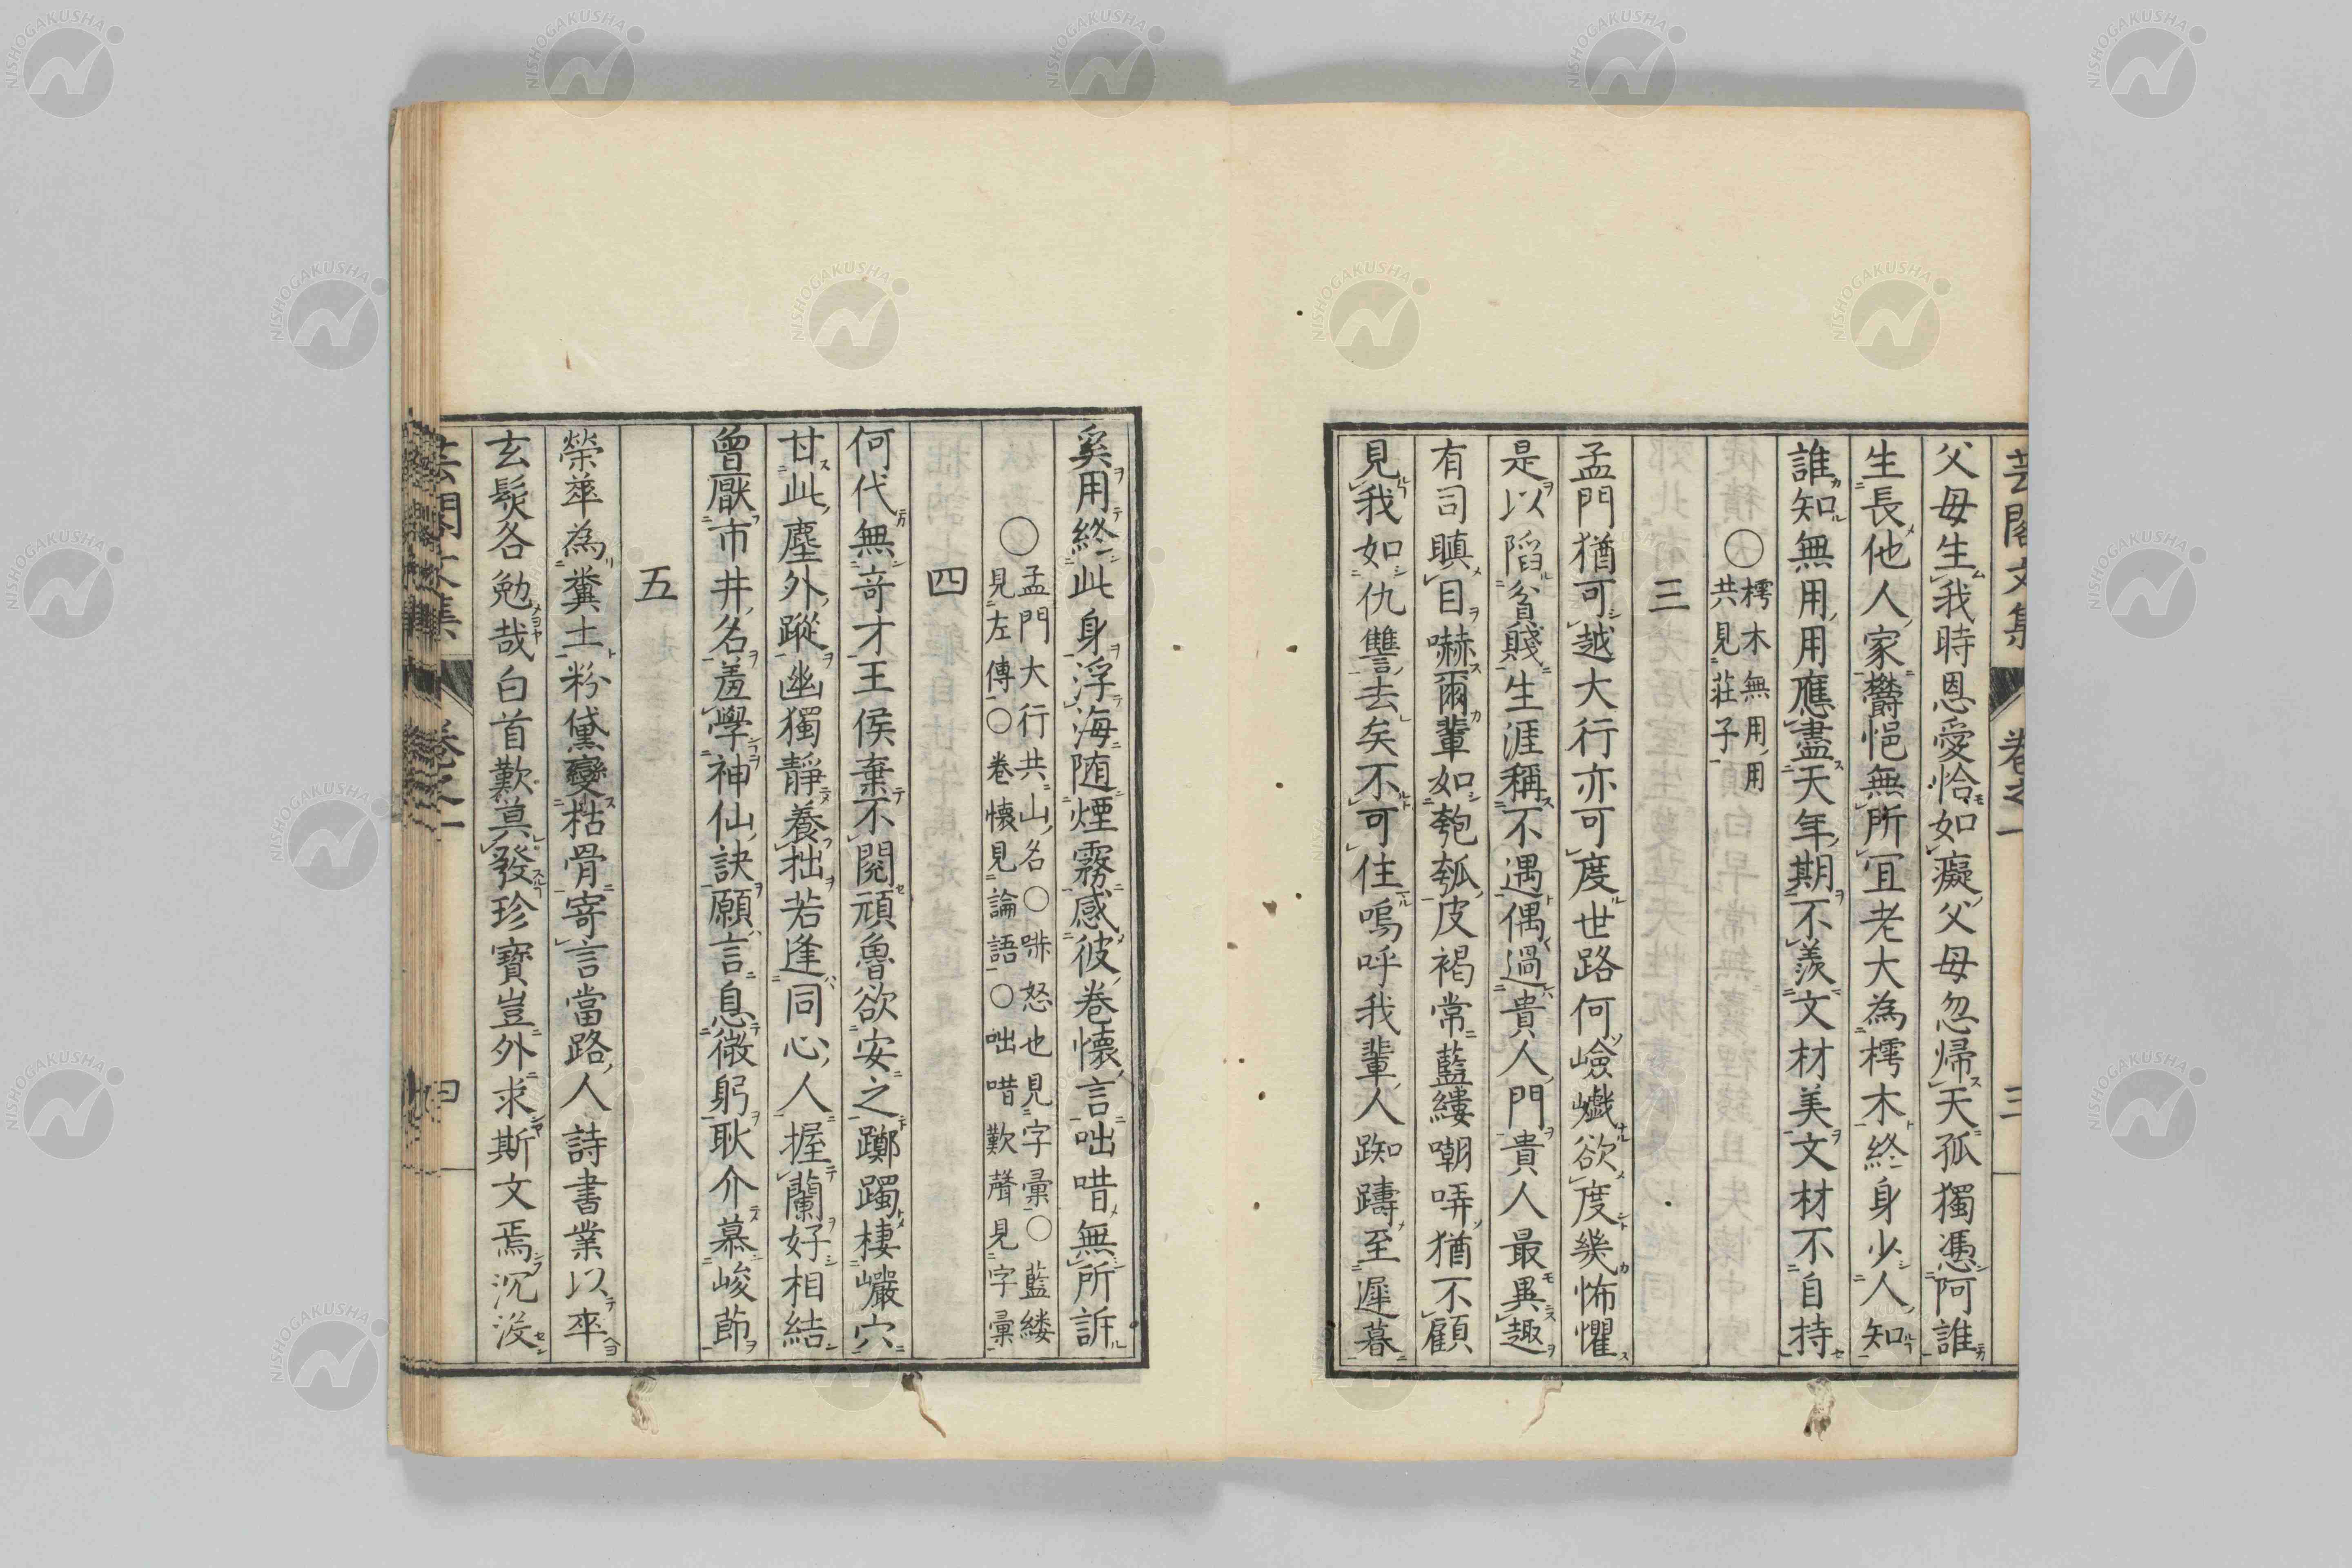 芸閣文集 卷之一 三
父母生我時恩愛恰如癡父母忽歸天孤獨憑阿誰
生長他人家欝悒無所宜老大為樗木終身少人知
誰知無用用應盡天年期不羨文材美文材不自持
○樗木無用用
共見莊子
三
孟門猶可越大行亦可度世路何嶮巇欲度幾怖懼
是以陷貧賤生涯稱不遇偶過貴人門貴人最異趣
有司瞋目嚇爾輩如匏瓠皮褐常藍縷嘲哢猶不顧
見我如仇讐去矣不可住嗚呼我輩人踟躊至遲暮
奚用終此身浮海随煙霧感彼卷懷言咄唶無所訴
○孟門大行共山名○嚇怒也見字彙○藍縷
見左傳○卷懷見論語○咄唶歎聲見字彙
四
何代無竒才王侯棄不閱頑魯欲安之躑躅棲巖穴
甘此塵外蹤幽獨靜養拙若逢同心人握蘭好相結
曾厭市井名羞學神仙訣願言息微躬耿介慕峻節
五
榮華為糞土粉黛變枯骨寄言當路人詩書業以卒
玄髮各勉哉白首歎莫發珍寶豈外求斯文焉沉沒
芸閣文集 卷之一 四
NISHOGAKUSHA